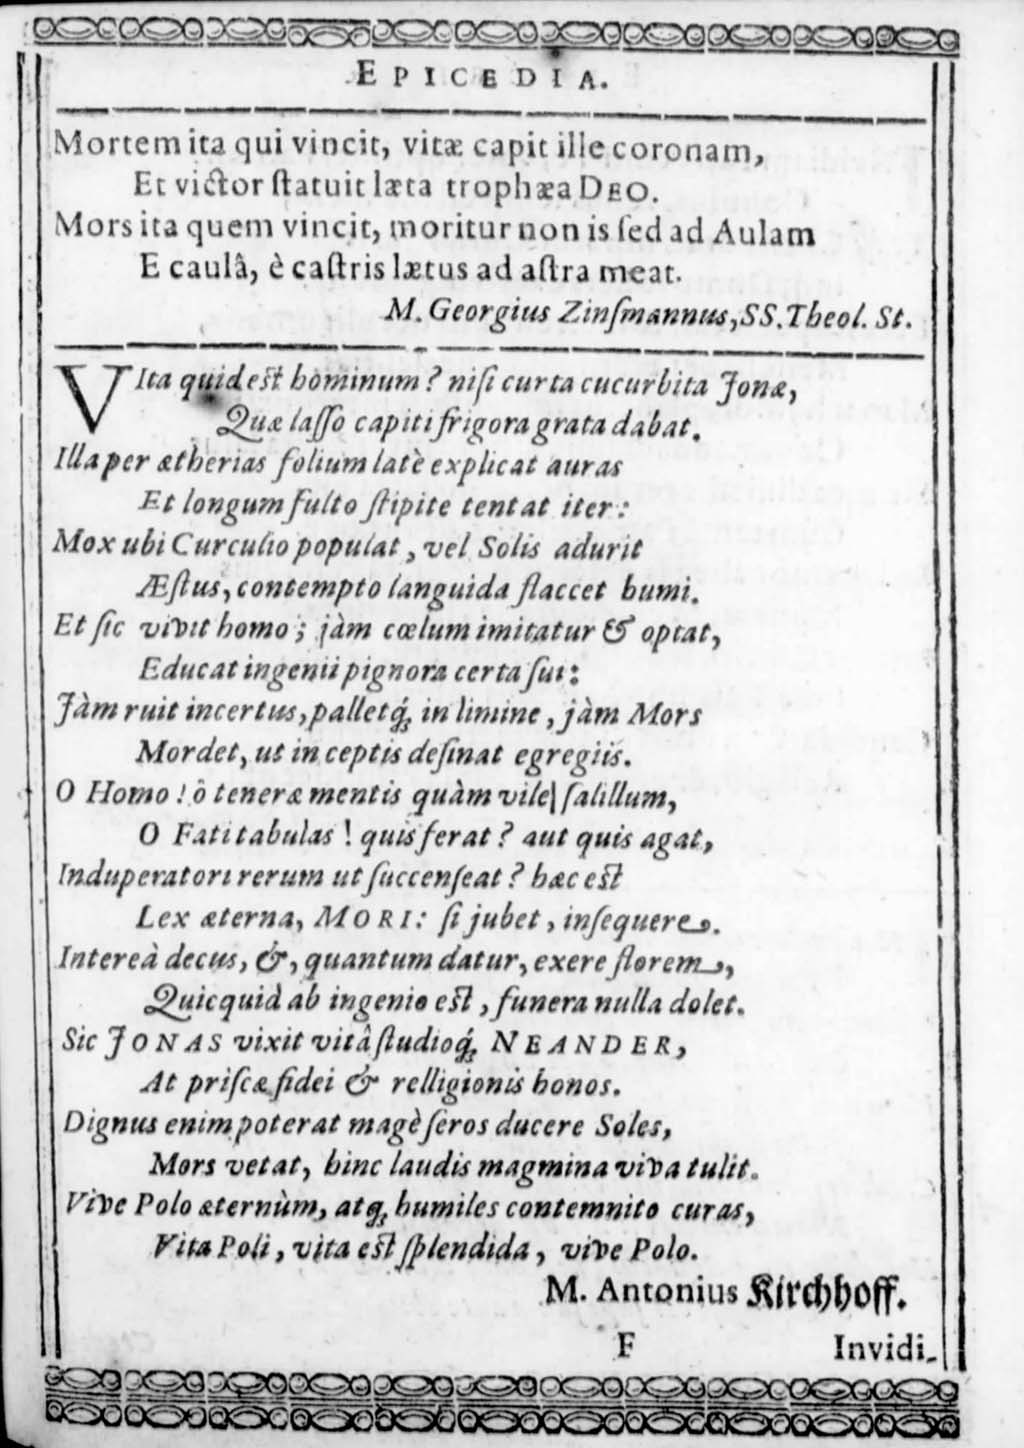 EPICEDIA.
Mortem ita qui vincit, vitæ capit ille coronam,
Et victor ſtatuit læta trophæa DEO.
Mors ita quem vincit, moritur non is ſed ad Aulam
E caulâ, è caſtris lætus ad aſtra meat.
M. Georgius Zinſmannus, SS. Theol. St.
VIta quid eſt hominum? niſi curta cucurbita Jonæ,
Quæ laſſo capiti frigora grata dabat.
Illa per ætherias folium latè explicat auras
Et longum fulto ſtipite tentat iter:
Mox ubi Curculio populat, vel Solis adurit
Æſtus, contempto languida flaccet humi.
Et ſic vivit homo; jàm cœlum imitatur & optat,
Educat ingenii pignora certa ſui:
Jàm ruit incertus, palletq́; in limine, jàm Mors
Mordet, ut in ceptis deſinat egregiis.
O Homo! ô teneræ mentis quàm vile ſalillum,
O Fati tabulas! quis ferat? aut quis agat,
Induperatori rerum ut ſuccenſeat? hæc eſt
Lex æterna, MORI: ſi jubet, inſequere.
Intereà decus, &, quantum datur, exere florem,
Quicquid ab ingenio eſt, funera nulla dolet.
Sic JONAS vixit vitâ ſtudioq́; NEANDER,
At priſcæ fidei & relligionis honos.
Dignus enim poterat magè ſeros ducere Soles,
Mors vetat, hinc laudis magmina viva tulit.
Vive Polo æternùm, atq; humiles contemnito curas,
Vita Poli, vita eſt ſplendida, vive Polo.
M. Antonius Kirchhoff.
F Invidi-